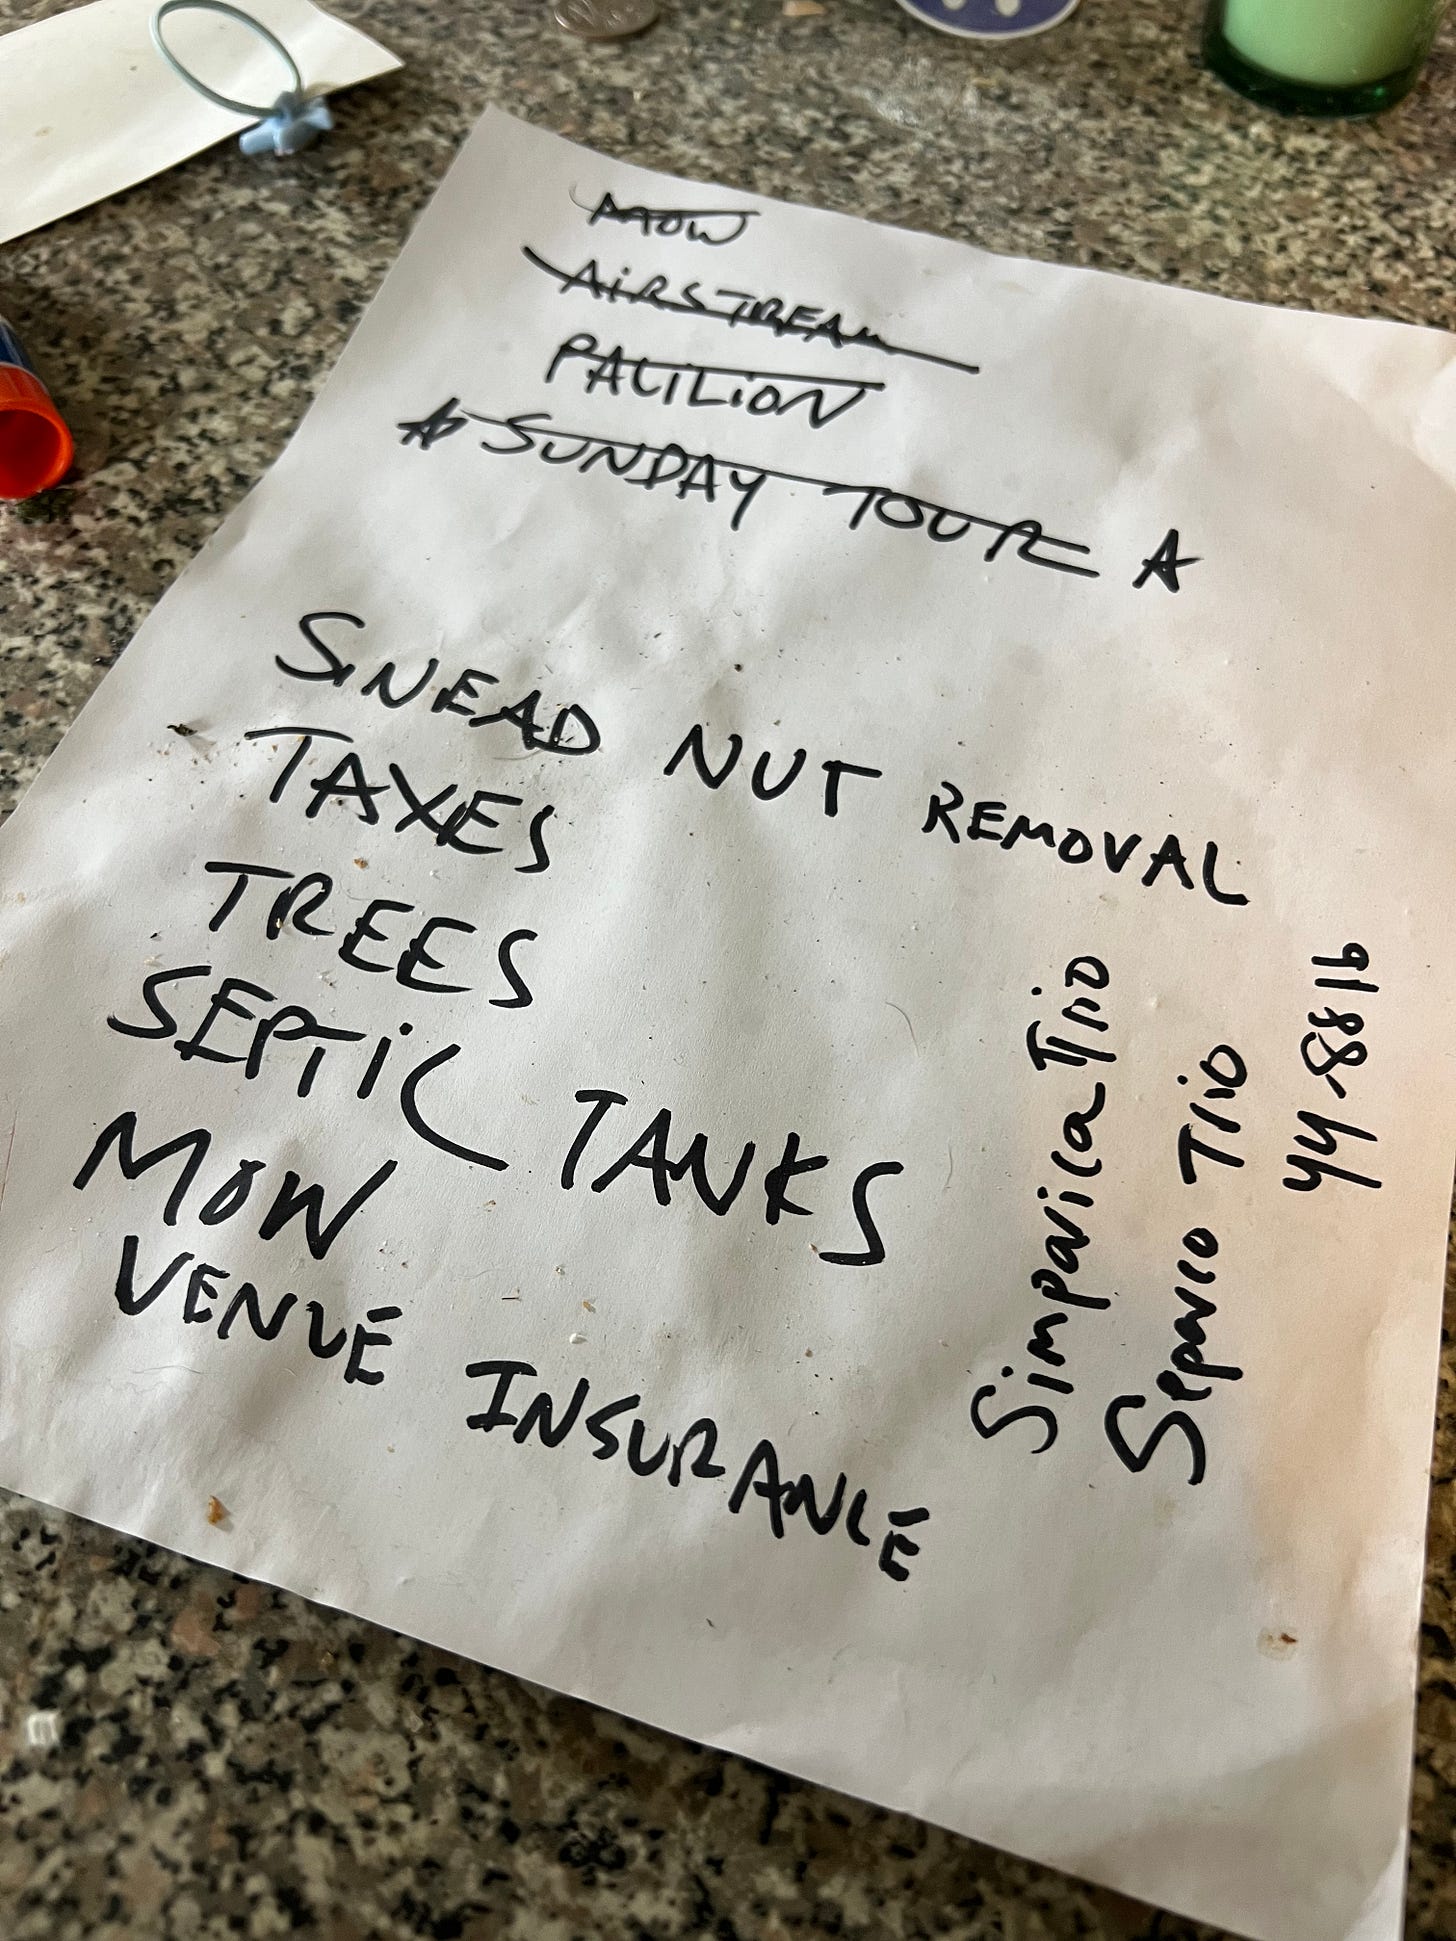 MOW
AIRSTREAM
PAVILION
SUNDAY TOUR
SINEAD NUT REMOVAL
TAXES
TREES
SEPTIC TANKS
MOW
VENUE INSURANCE
Simparica Trio
Separco Trio
44-88 lb